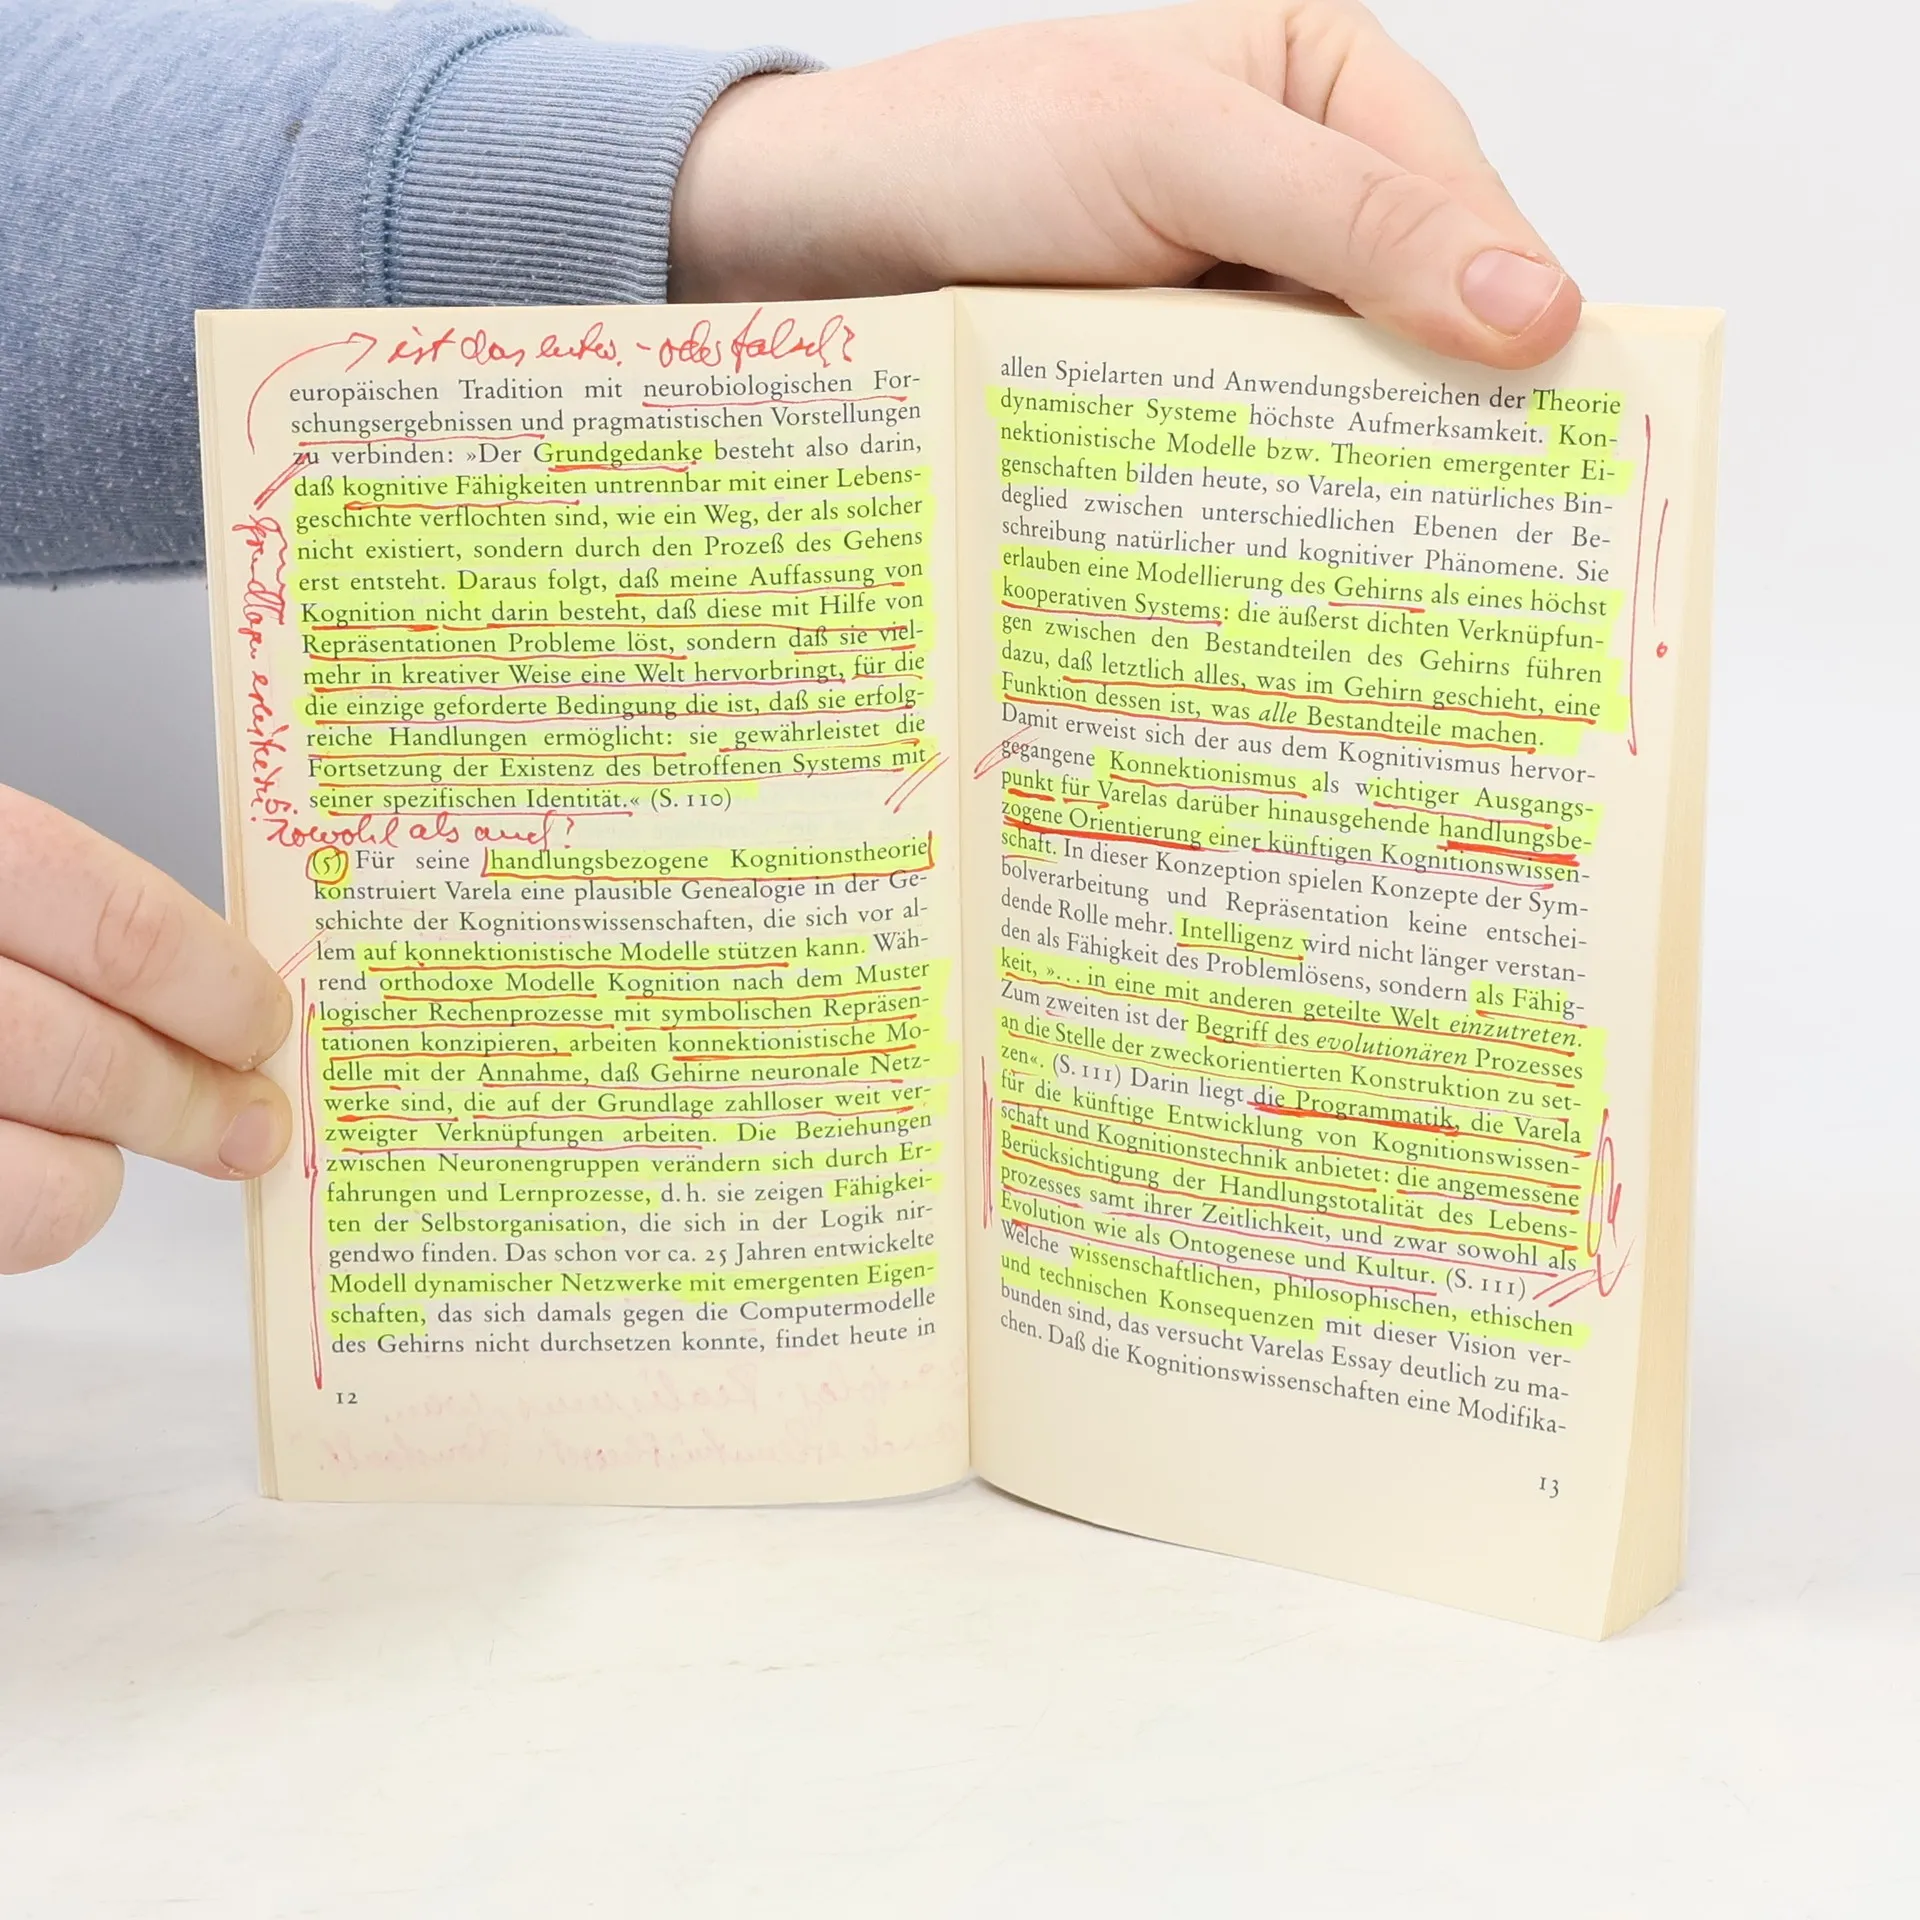 ist das entw. - oder falsch?
europäischen Tradition mit neurobiologischen For-
schungsergebnissen und pragmatistischen Vorstellungen
zu verbinden: »Der Grundgedanke besteht also darin,
daß kognitive Fähigkeiten untrennbar mit einer Lebens-
geschichte verflochten sind, wie ein Weg, der als solcher
nicht existiert, sondern durch den Prozeß des Gehens
erst entsteht. Daraus folgt, daß meine Auffassung von
Kognition nicht darin besteht, daß diese mit Hilfe von
Repräsentationen Probleme löst, sondern daß sie viel-
mehr in kreativer Weise eine Welt hervorbringt, für die
die einzige geforderte Bedingung die ist, daß sie erfolg-
reiche Handlungen ermöglicht: sie gewährleistet die
Fortsetzung der Existenz des betroffenen Systems mit
seiner spezifischen Identität.« (S. 110)
sowohl als auch?
(5) Für seine handlungsbezogene Kognitionstheorie
konstruiert Varela eine plausible Genealogie in der Ge-
schichte der Kognitionswissenschaften, die sich vor al-
lem auf konnektionistische Modelle stützen kann. Wäh-
rend orthodoxe Modelle Kognition nach dem Muster
logischer Rechenprozesse mit symbolischen Repräsen-
tationen konzipieren, arbeiten konnektionistische Mo-
delle mit der Annahme, daß Gehirne neuronale Netz-
werke sind, die auf der Grundlage zahlloser weit ver-
zweigter Verknüpfungen arbeiten. Die Beziehungen
zwischen Neuronengruppen verändern sich durch Er-
fahrungen und Lernprozesse, d. h. sie zeigen Fähigkei-
ten der Selbstorganisation, die sich in der Logik nir-
gendwo finden. Das schon vor ca. 25 Jahren entwickelte
Modell dynamischer Netzwerke mit emergenten Eigen-
schaften, das sich damals gegen die Computermodelle
des Gehirns nicht durchsetzen konnte, findet heute in
12
allen Spielarten und Anwendungsbereichen der Theorie
dynamischer Systeme höchste Aufmerksamkeit. Kon-
nektionistische Modelle bzw. Theorien emergenter Ei-
genschaften bilden heute, so Varela, ein natürliches Bin-
deglied zwischen unterschiedlichen Ebenen der Be-
schreibung natürlicher und kognitiver Phänomene. Sie
erlauben eine Modellierung des Gehirns als eines höchst
kooperativen Systems: die äußerst dichten Verknüpfun-
gen zwischen den Bestandteilen des Gehirns führen
dazu, daß letztlich alles, was im Gehirn geschieht, eine
Funktion dessen ist, was alle Bestandteile machen.
Damit erweist sich der aus dem Kognitivismus hervor-
gegangene Konnektionismus als wichtiger Ausgangs-
punkt für Varelas darüber hinausgehende handlungsbe-
zogene Orientierung einer künftigen Kognitionswissen-
schaft. In dieser Konzeption spielen Konzepte der Sym-
bolverarbeitung und Repräsentation keine entschei-
dende Rolle mehr. Intelligenz wird nicht länger verstan-
den als Fähigkeit des Problemlösens, sondern als Fähig-
keit, »... in eine mit anderen geteilte Welt einzutreten.
Zum zweiten ist der Begriff des evolutionären Prozesses
an die Stelle der zweckorientierten Konstruktion zu set-
zen«. (S. 111) Darin liegt die Programmatik, die Varela
für die künftige Entwicklung von Kognitionswissen-
schaft und Kognitionstechnik anbietet: die angemessene
Berücksichtigung der Handlungstotalität des Lebens-
prozesses samt ihrer Zeitlichkeit, und zwar sowohl als
Evolution wie als Ontogenese und Kultur. (S. 111)
Welche wissenschaftlichen, philosophischen, ethischen
und technischen Konsequenzen mit dieser Vision ver-
bunden sind, das versucht Varelas Essay deutlich zu ma-
chen. Daß die Kognitionswissenschaften eine Modifika-
13